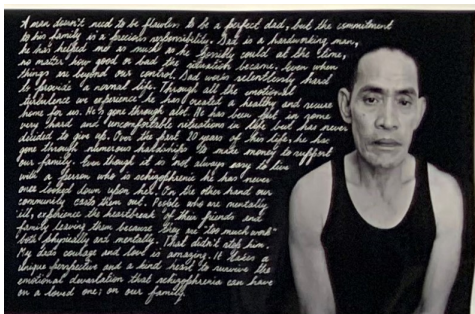 A man doesn't need to be flawless to be a perfect dad, but the commitment
to his family is a precious responsibility. Dad is a hardworking man,
he has helped me as much as he possibly could at the time,
no matter how good or bad the situation became. Even when
things are beyond our control. Dad works relentlessly hard
to provide a normal life. Through all the emotional
turbulence we experience he has created a healthy and secure
home for us. He's gone through alot. He has been put in some
very hard and uncomfortable situations in life but has never
decided to give up. Over the past 20 years of his life, he has
gone through numerous hardships to make money to support
our family. Even though it is not always easy to live
with a person who is schizophrenic he has never
once looked down upon her. On the other hand our
community casts them out. People who are mentally
ill, experience the heartbreak of their friends and
family leaving them because they are "too much work"
both physically and mentally. That didn't stop him.
My dads courage and love is amazing. It takes a
unique perspective and a kind heart to survive the
emotional devastation that schizophrenia can have
on a loved one; on our family.